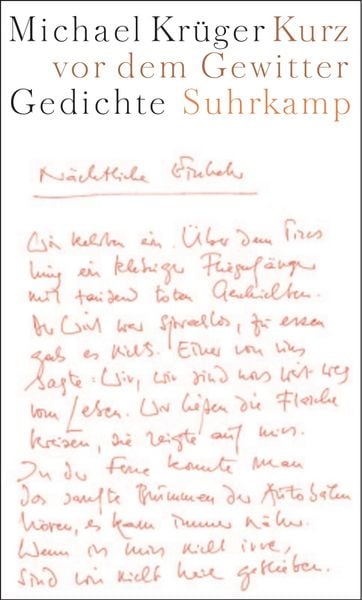 Michael Krüger Kurz
vor dem Gewitter
Gedichte Suhrkamp
Nächtliche Einkehr
Wir kehrten ein. Über dem Tresen
hing ein klebriger Fliegenfänger
mit tausend toten Geschichten.
Der Wirt war sprachlos, zu essen
gab es nichts. Einer von uns
sagte: Wir, wir sind was weit weg
vom Leben. Wir ließen die Flasche
kreisen, sie zeigte auf mich.
In der Ferne konnte man
das sanfte Brummen der Autobahn
hören, es kam immer näher.
Wenn ich mich nicht irre,
sind wir nicht heil geblieben.